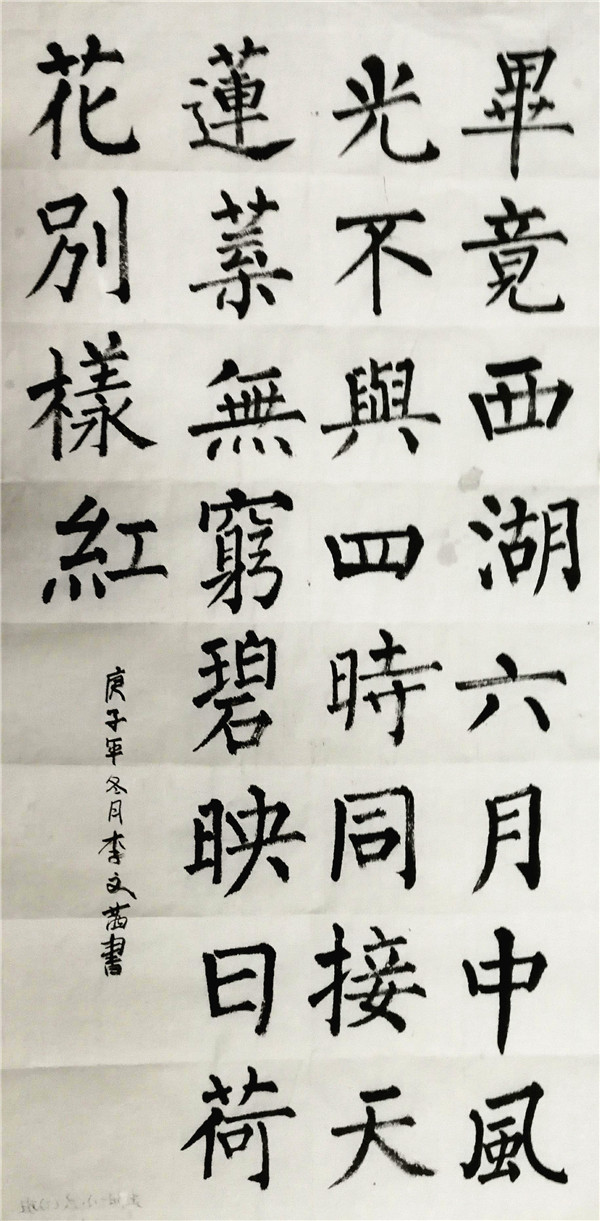 畢竟西湖六月中風
光不與四時同接天
蓮葉無窮碧映日荷
花別樣紅
庚子年冬月李文茜書